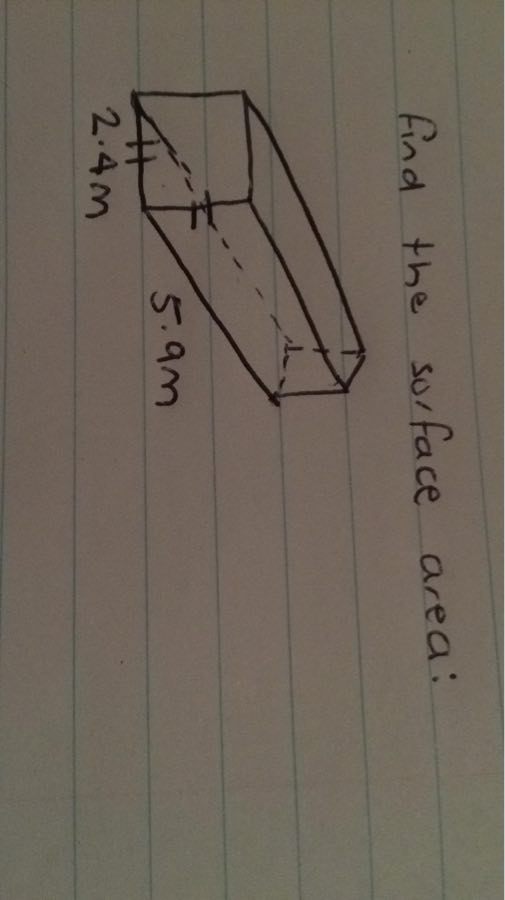 find the surface area:
2.4m
5.9m